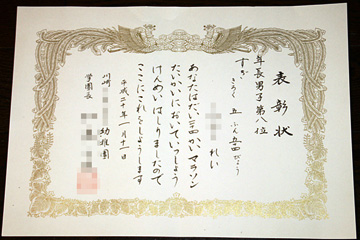 表彰状
年長男子第八位
すぎ
きろく 五ふん五四びょう
れい
あなたはだい三四かいマラソン
たいかいにおいていっしょう
けんめいはしりましたので
ここにこれをしょうします
平成二十年一月十一日
川崎 幼稚園
学園長